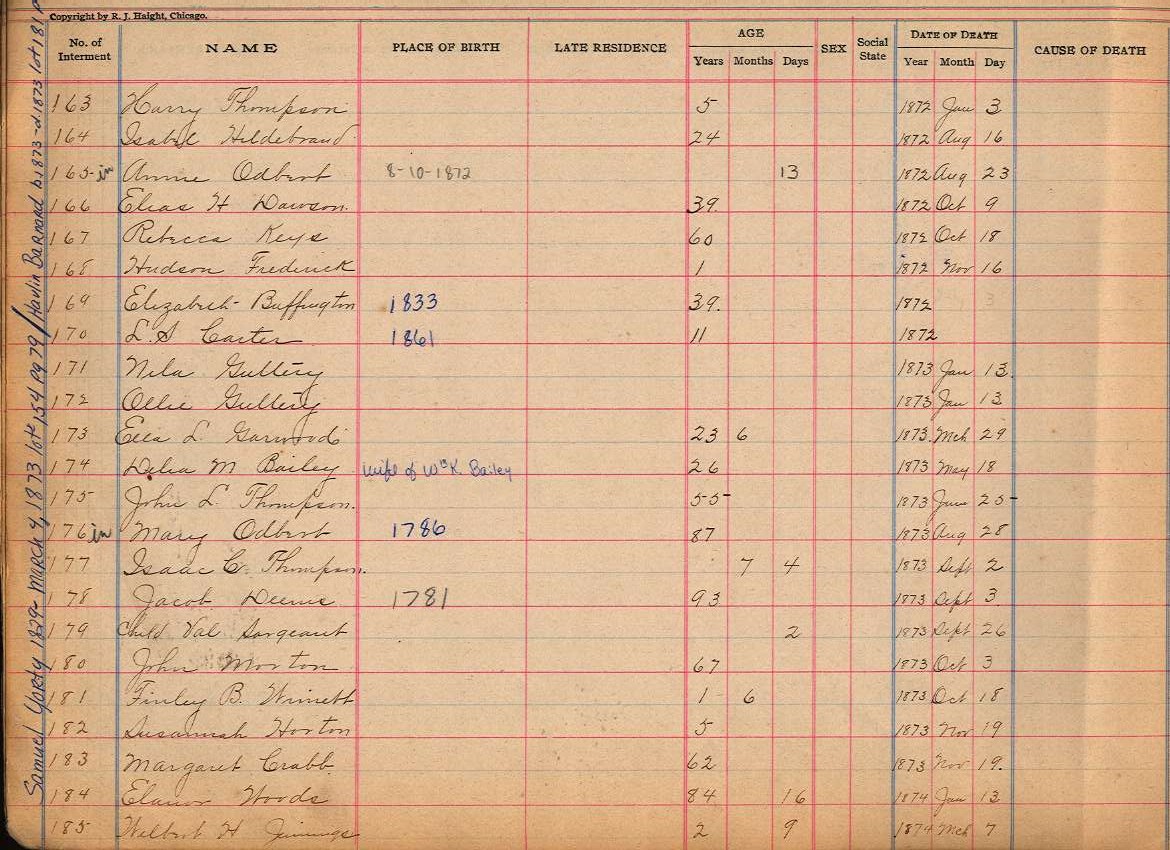 Copyright by R. J. Haight, Chicago.
No. of Interment NAME PLACE OF BIRTH LATE RESIDENCE AGE Years Months Days SEX Social State DATE OF DEATH Year Month Day CAUSE OF DEATH
163 Harry Thompson 5 1872 3
164 Isabel Hildebrand 24 1872 Aug 16
165 in Annie Odbert 8-10-1872 13 1872 Aug 23
166 Elias H Dawson. 39. 1872 Oct 9
167 Rebecca Keys 60 1872 Oct 18
168 Hudson Frederick 1 1872 Nov 16
169 Elizabeth Buffington 1833 39. 1872
170 L. S Carter 1861 11 1872
171 Nila Guttery 1873 Jan 13.
172 Ollie Guttery 1873 Jan 13
173 Ella L. Garwood 23 6 1873. Mch 29
174 Delia M Bailey wife of Wm K. Bailey 26 1873 May 18
175 John L. Thompson. 55 1873 June 25
176 in Mary Odbert 1786 87 1873 Aug 28
177 Isaac C. Thompson. 7 4 1873 Sept 2
178 Jacob Deems 1781 93 1873 Sept 3.
179 Child Val Sargeant 2 1873 Sept 26
180 John Morton 67 1873 Oct 3
181 Finley B. Winnett 1 6 1873 Oct 18
182 Susannah Horton 5 1873 Nov 19
183 Margaret Crabb 62 1873 Nov 19.
184 Elanor Woods 84 16 1874 Jan 13
185 Welbert H Jennings 2 9 1874 Mch 7
Samuel Yorty 1829- March 4, 1873 lot 154 pg 79 / Havlin Barnard b1873-d1873 lot 181